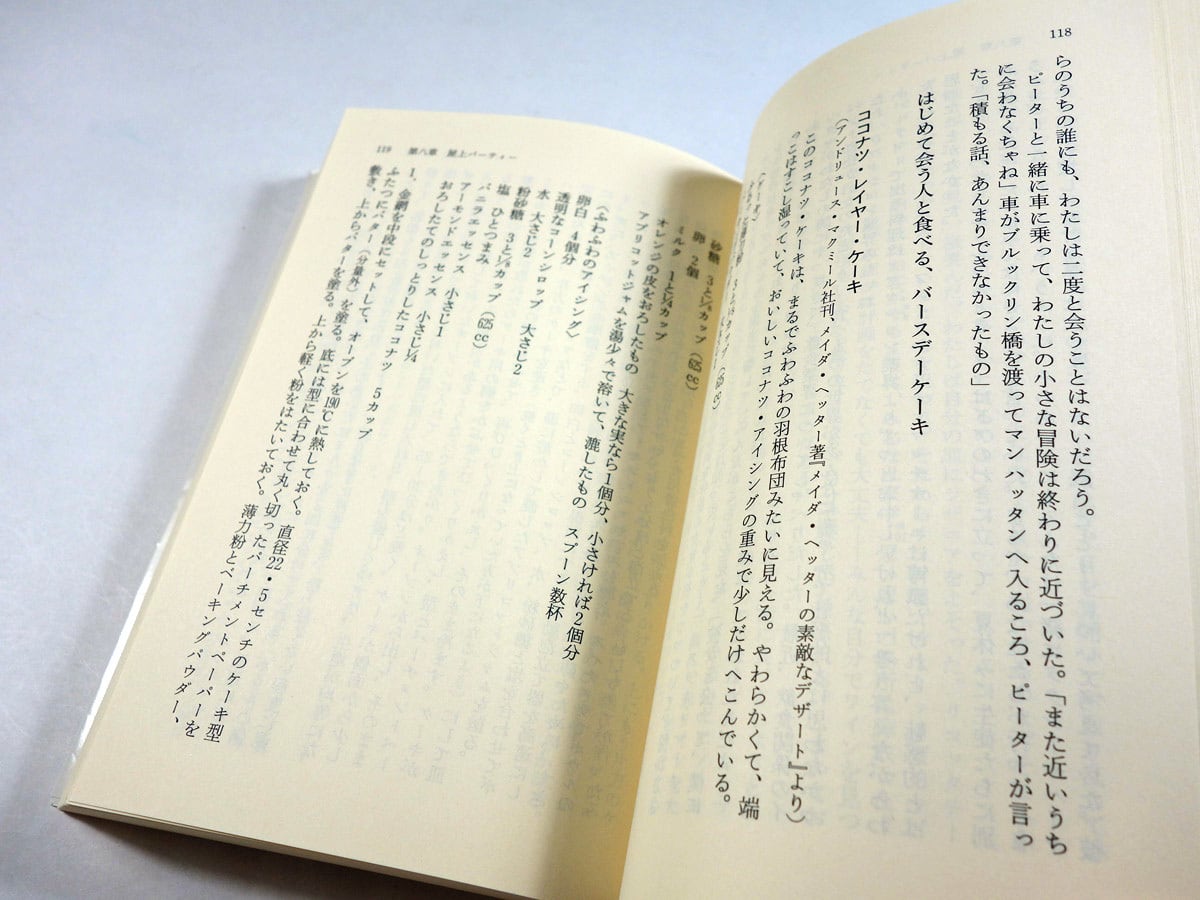 118
らのうちの誰にも、わたしは二度と会うことはないだろう。
ピーターと一緒に車に乗って、わたしの小さな冒険は終わりに近づいた。「また近いうち
に会わなくちゃね」車がブルックリン橋を渡ってマンハッタンへ入るころ、ピーターが言っ
た。「積もる話、あんまりできなかったもの」
はじめて会う人と食べる、バースデーケーキ
ココナツ・レイヤー・ケーキ
(アンドリュース・マクミール社刊、メイダ・ヘッター著『メイダ・ヘッターの素敵なデザート』より)
このココナツ・ケーキは、まるでふわふわの羽根布団みたいに見える。やわらかくて、端
っこはすこし湿っていて、おいしいココナツ・アイシングの重みで少しだけへこんでいる。
119 第八章 屋上パーティー
砂糖 3と⅛カップ(625cc)
卵 2個
ミルク 1と¼カップ
オレンジの皮をおろしたもの 大きな実なら1個分、小さければ2個分
アプリコットジャムを湯少々で溶いて、漉したもの スプーン数杯
〈ふわふわのアイシング〉
卵白 4個分
透明なコーンシロップ 大さじ2
水 大さじ2
粉砂糖 3と⅛カップ(625cc)
塩 ひとつまみ
バニラエッセンス 小さじ1
アーモンドエッセンス 小さじ¼
おろしたてのしっとりしたココナツ 5カップ
1、金網を中段にセットして、オーブンを190℃に熱しておく。直径22・5センチのケーキ型
ふたつにバター(分量外)を塗る。底には型に合わせて丸く切ったパーチメントペーパーを
敷き、上からバターを塗る。上から軽く粉をはたいておく。薄力粉とベーキングパウダー、